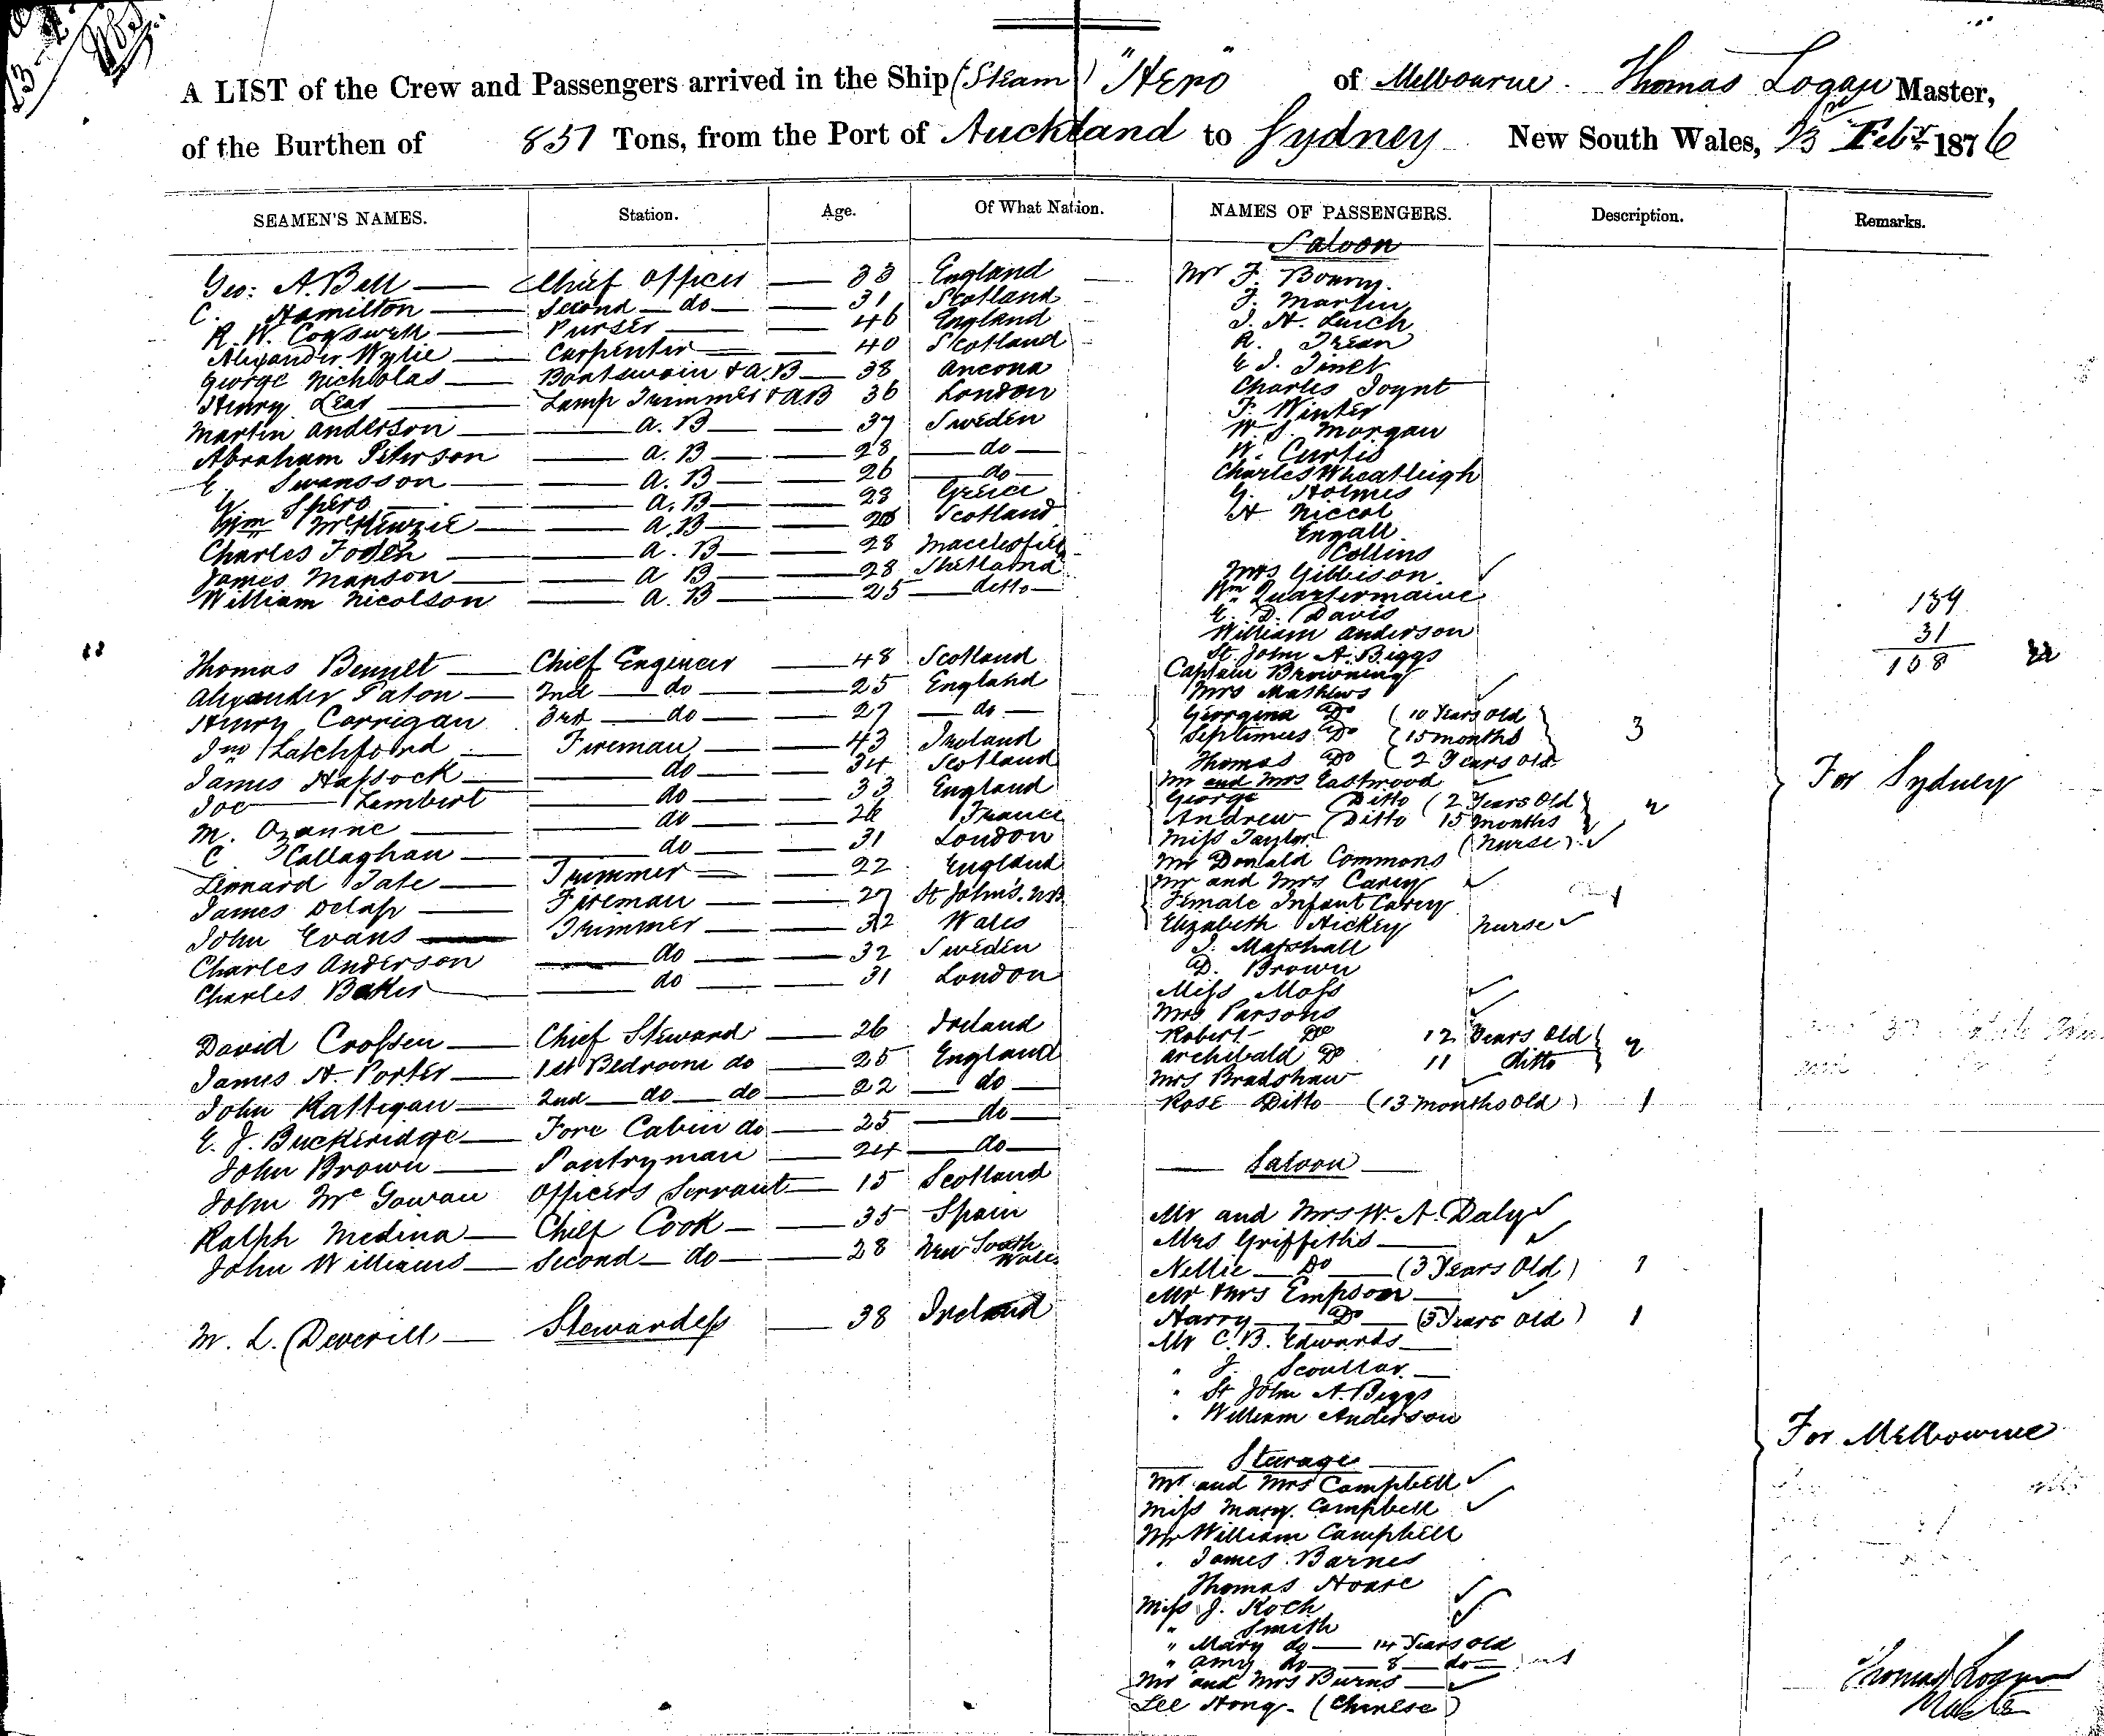 A LIST of the Crew and Passengers arrived in the Ship (Steam) "Hero" of Melbourne. Thomas Logan Master,
of the Burthen of 851 Tons, from the Port of Auckland to Sydney New South Wales, Feby 1876
SEAMEN'S NAMES. Station. Age. Of What Nation. NAMES OF PASSENGERS. Description. Remarks.
Geo: A. Bell Chief Officer 33 England
C. Hamilton Second do 31 Scotland
R. W. Cogswell Purser 46 England
Alexander Wylie Carpenter 40 Scotland
George Nicholas Boatswain & A.B 38 Ancona
Henry Lear Lamp Trimmer & AB 36 London
Martin Anderson A.B 37 Sweden
Abraham Peterson A.B 28 do
E. Swansson A.B 26 do
G. Spero A.B 28 Greece
Wm McKenzie A.B Scotland
Charles Foden A.B 28 Macclesfield
James Manson A B 28 Shetland
William Nicolson A.B 25 ditto
Thomas Bennet Chief Engeneer 48 Scotland
Alexander Paton 2nd do 25 England
Henry Corrigan 3rd do 27 do
Jno Latchford Fireman 43 Ireland
James Hassock do 34 Scotland
Joe Lambert do 33 England
M. Ozanne do 26 France
C Callaghan do 31 London
Lennard Tate Trimmer 22 England
James Delap Fireman 27 St Johns. NB
John Evans Trimmer 32 Wales
Charles Anderson do 32 Sweden
Charles Baker do 31 London
David Crossen Chief Steward 26 Ireland
James H. Porter 1st Bedroom do 25 England
John Rattigan 2nd do do 22 do
E. J. Buckeridge Fore Cabin do 25 do
John Brown Pantryman 24 do
John McGowan Officers Servant 15 Scotland
Ralph Medina Chief Cook 35 Spain
John Williams Second do 28 New South Wales
M. L. Deverill Stewardess 38 Ireland
Saloon
Mr F. Bourny.
F. Martin
J. H. Leech
R.
E J.
Charles Joynt
F. Winter
W. S. Morgan
W. Curtis
Charles Wheatleigh
G. Holmes
H Niccol
Engall
Collins
Mrs Gibbison
Wm Quartermaine
E. D. Davis
William Anderson
St John A. Biggs
Captain Browning
Mrs Mathews
Georgina Do (10 Years Old
Septimus Do (15 months 3
Thomas Do (2 Years Old
Mr and Mrs Eastwood
George Ditto (2 Years Old
Andrew Ditto 15 months 2
Miss Taylor (Nurse)
Mr Donald Commons
Mr and Mrs Carey
Female Infant Carey 1
Elizabeth Hickey Nurse
J. Marshall
D. Brown
Miss Moss
Mrs Parsons
Robert Do 12 Years Old
Archibald Do 11 Ditto 2
Mrs Bradshaw
Rose Ditto (13 months old) 1
139
31
108
For Sydney
Saloon
Mr and Mrs W. A. Daly
Mrs Griffiths
Nellie Do (3 Years Old) 1
Mr & Mrs Empson
Harry Do (3 Years old) 1
Mr C. B. Edwards
" J. Scoullar
" St John A. Biggs
" William Anderson
Sturage
Mr and Mrs Campbell
Miss Mary Campbell
Mr William Campbell
" James Barnes
Thomas Hoare
Miss J. Koch
" Smith
" Mary do 14 Years old
" Amy do 8 do
Mr and Mrs Burns
Lee Hong. (Chinese)
For Melbourne
Thomas Logan
Master